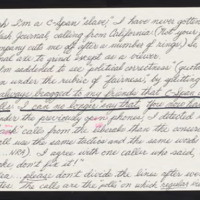 gh I'm a c-span 'slave', I have never gotten
ash Journal, calling from California! (Not your
ompany cuts me off after a number of rings). So
mat are to grand intent as a viewer.
m saddened to see 'political correctness' (quotas
under the rubric of 'fairness', by splitting
always bragged to my friends that c-Span
I can no longer say that. You also have
under the previously given phones; I detected
calls from the liberals than the conserv
all use the same tactics and the same words
NRA) I agree with one caller who said,
ke don't fix it!"
please don't divide the lines after wee
The calls are the polls on which regular